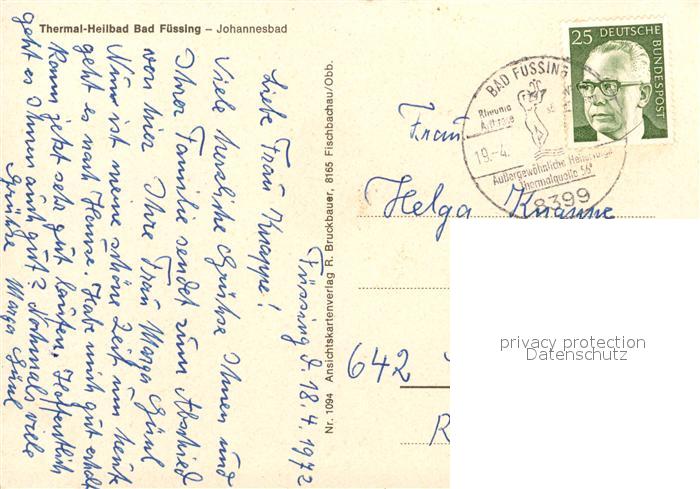 Thermal-Heilbad Bad Füssing – Johannesbad
Füssing d. 18.4.1972
Liebe Frau Knappe!
Viele herzliche Grüße Ihnen und
Ihrer Familie sendet zum Abschied
von hier Ihre Frau Marga
Nun ist meine schöne Zeit um heute
geht es nach Hause. Habe mich gut erholt
kann jetzt sehr gut laufen. Hoffentlich
geht es Ihnen auch gut? Nochmals viele
Grüße Marga
Nr. 1094 Ansichtskartenverlag R. Bruckbauer, 8165 Fischbachau/Obb.
25 DEUTSCHE BUNDESPOST
BAD FÜSSING
Rheuma
19.-4.
Außergewöhnliche
Thermalquelle 56°
8399
Frau
Helga Knappe
642
R
privacy protection
Datenschutz